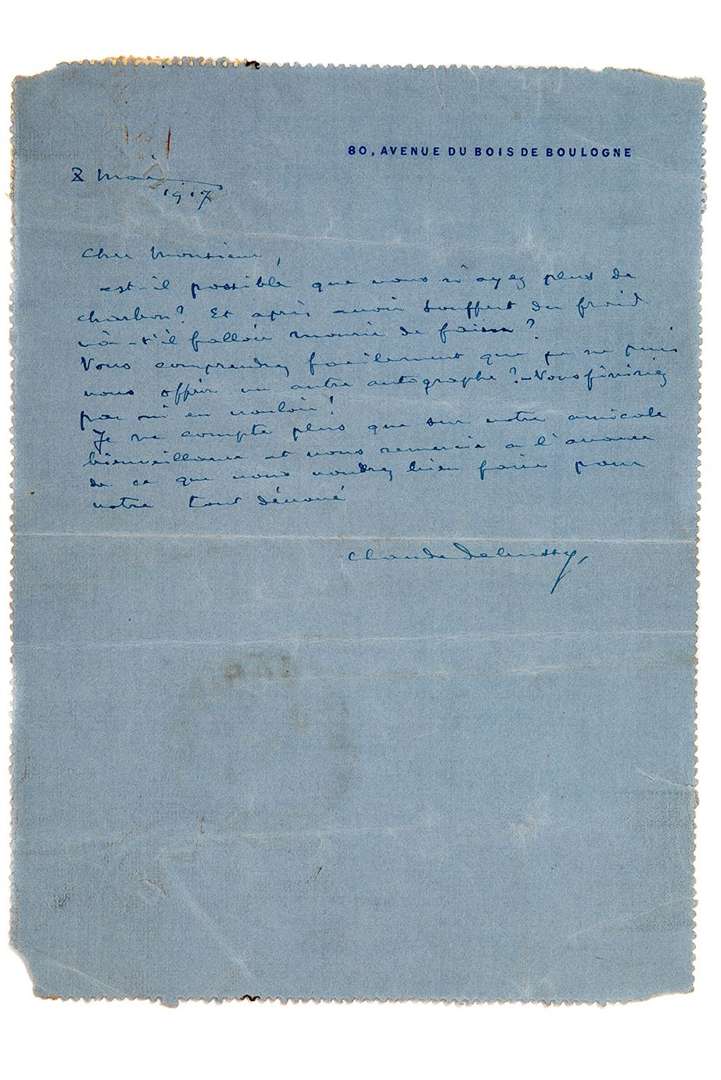 80, AVENUE DU BOIS DE BOULOGNE
8 Mai
1917
Cher Monsieur,
est-il possible que vous n'ayez plus de
charbon? Et après avoir souffert du froid
va-t'il falloir mourir de faim?
Vous comprendrez facilement que je ne puis
vous offrir un autre autographe? – Vous finiriez
par m'en vouloir!
Je ne compte plus que sur votre amicale
bienveillance et vous remercie à l'avance
de ce que vous voudrez bien faire pour
votre tout dévoué
Claude Debussy,